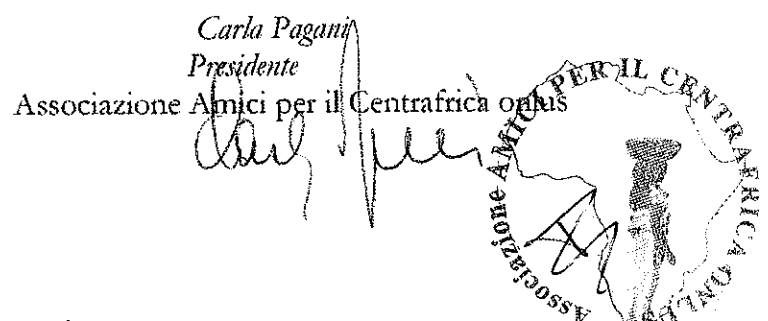 Carla Pagani
Presidente
Associazione Amici per il Centrafrica onlus
Associazione AMICI PER IL CENTRAFRICA ONLUS